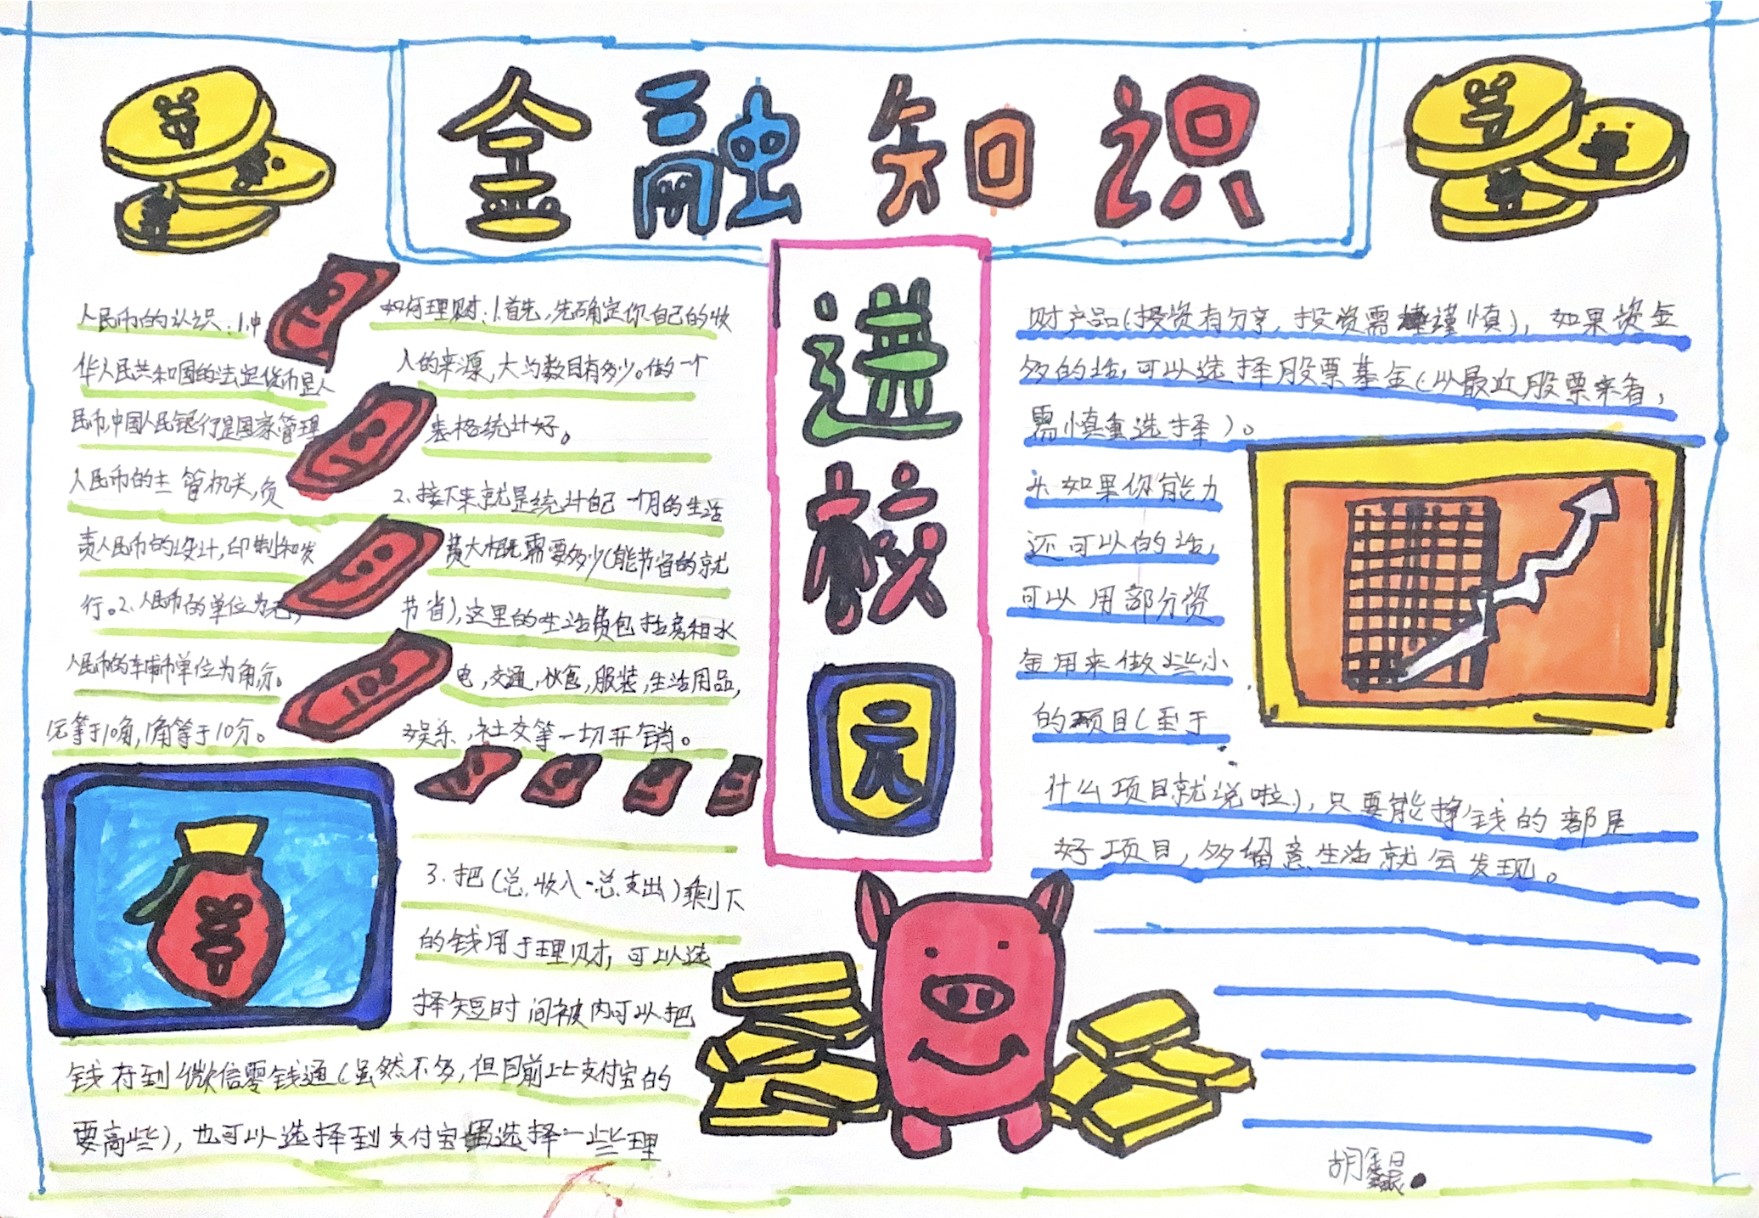 金融知识
进校园
人民币的认识:1.中
华人民共和国的法定货币是人
民币,中国人民银行是国家管理
人民币的主管机关,负
责人民币的设计,印制和发
行。2.人民币的单位为元,
人民币的车甫币单位为角,分。
元等于10角,1角等于10分。
如何理财:1.首先,先确定你自己的收
入的来源,大约数目有多少。做一个
表格统计好。
2.接下来就是统计自己一个月的生活
费大概需要多少(能节省的就
节省),这里的生活费包括房租水
电,交通,伙食,服装,生活用品,
娱乐,社交等一切开销。
3.把(总收入-总支出)剩下
的钱用于理财,可以选
择短时间被内可以把
钱存到微信零钱通(虽然不多,但目前比支付宝的
要高些),也可以选择到支付宝里选择一些理
财产品(投资有分享,投资需谨慎),如果资金
多的话,可以选择股票基金(以最近股票来看,
需慎重选择)。
4.如果你能力
还可以的话,
可以用部分资
金用来做些小
的项目(至于
什么项目就说啦),只要能挣钱的都是
好项目,多留意生活就会发现。
100
胡鑫